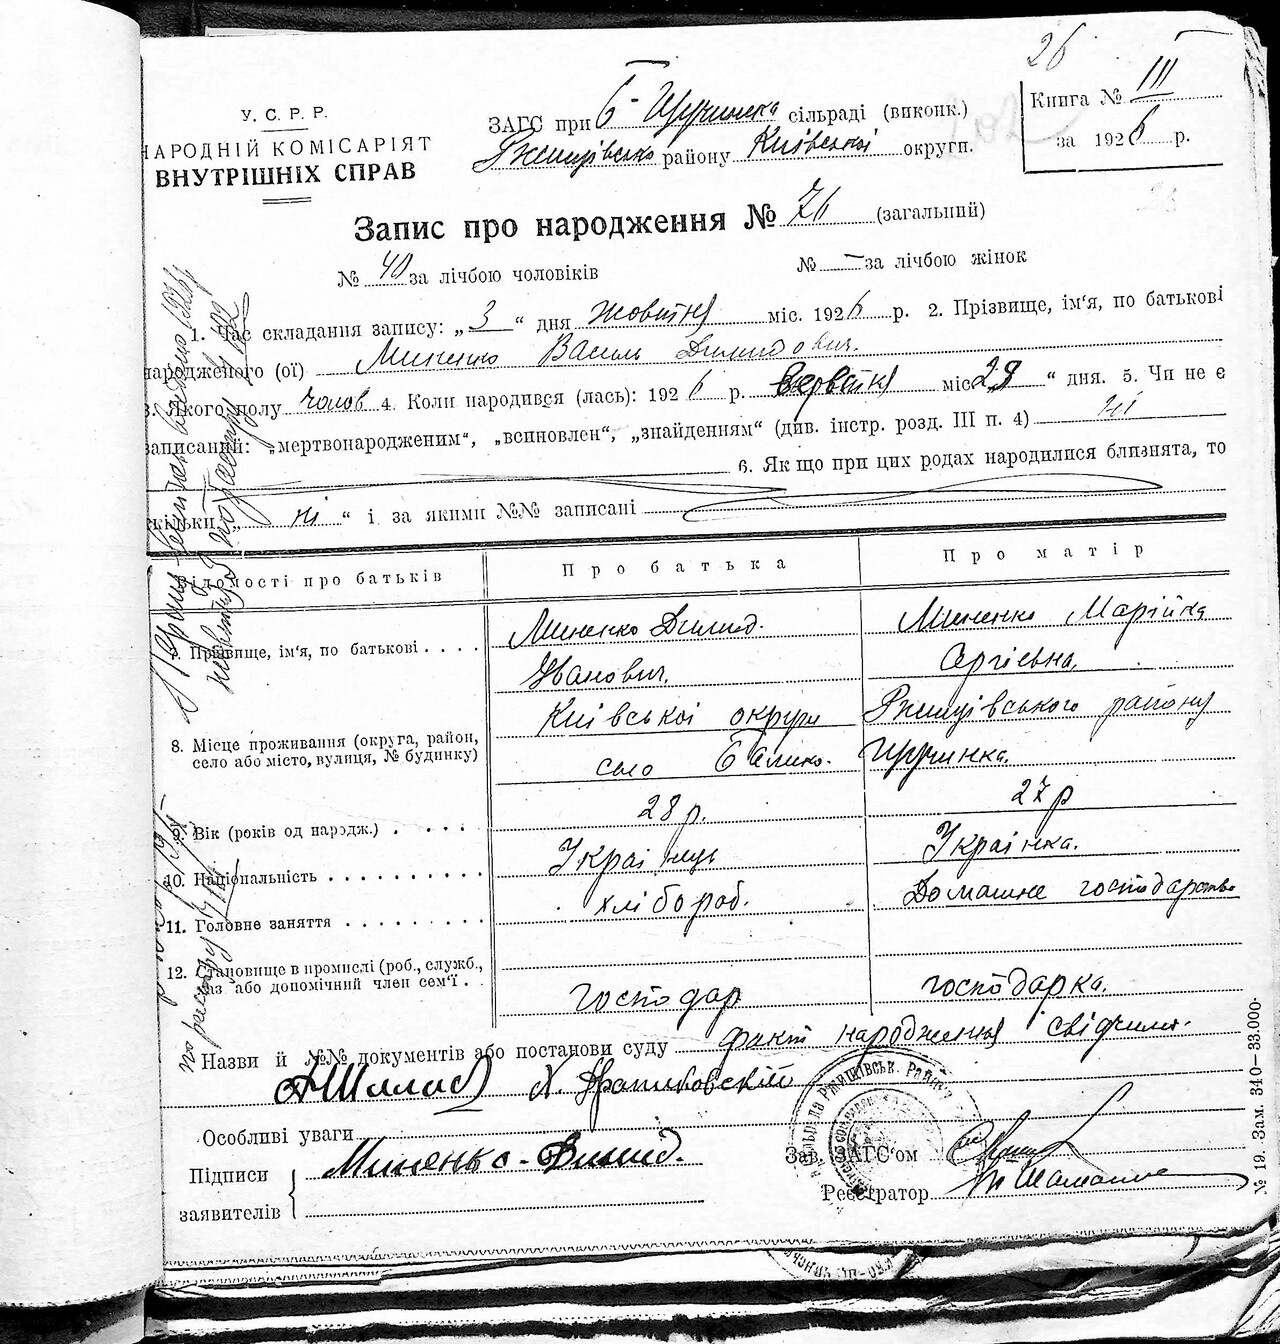 26
У. С. Р. Р.
НАРОДНІЙ КОМІСАРІЯТ
ВНУТРІШНІХ СПРАВ
ЗАГС при Б-Щучинка сільраді (виконк.)
Ржищівсько району Київської округи.
Книга № III
за 1926 р.
Запис про народження № 76 (загальний)
№ 40 за лічбою чоловіків
№ — за лічбою жінок
1. Час складання запису: „3“ дня жовтня міс. 1926 р. 2. Прізвище, ім'я, по батькові
народженого (ої) Миненко Василь Димидович.
3. Якого полу чолов 4. Коли народився (лась): 1926 р. вервеня міс 28 “ дня. 5. Чи не є
записаний: „мертвонародженим“, „всиновлен“, „знайденням“ (див. інстр. розд. III п. 4) ні
6. Як що при цих родах народилися близнята, то
скільки „ ні “ і за якими №№ записані
Відомості про батьків
Про батька
Про матір
7. Прізвище, ім'я, по батькові . . . .
Миненко Димид.
Иванович.
Миненко Марійка
Сергієвна.
8. Місце проживання (округа, район,
село або місто, вулиця, № будинку)
Київської округи Ржищівського району
село Балико. Щучинка.
9. Вік (років од народж.) . . . . .
28 р.
27 р
10. Національність . . . . . . . . . .
Українць
Українка.
11. Головне заняття . . . . . . . .
хлібороб.
Домашне господарство
12. Становище в промислі (роб., служб.,
газ або допомічний член сем'ї . .
господар
господарка.
Назви й №№ документів або постанови суду факт народження свідчили.
Особливі уваги
Підписи
заявителів
Миненько-Димид.
Зав. ЗАГС'ом
Реєстратор
№ 19. Зам. 340—33.000.